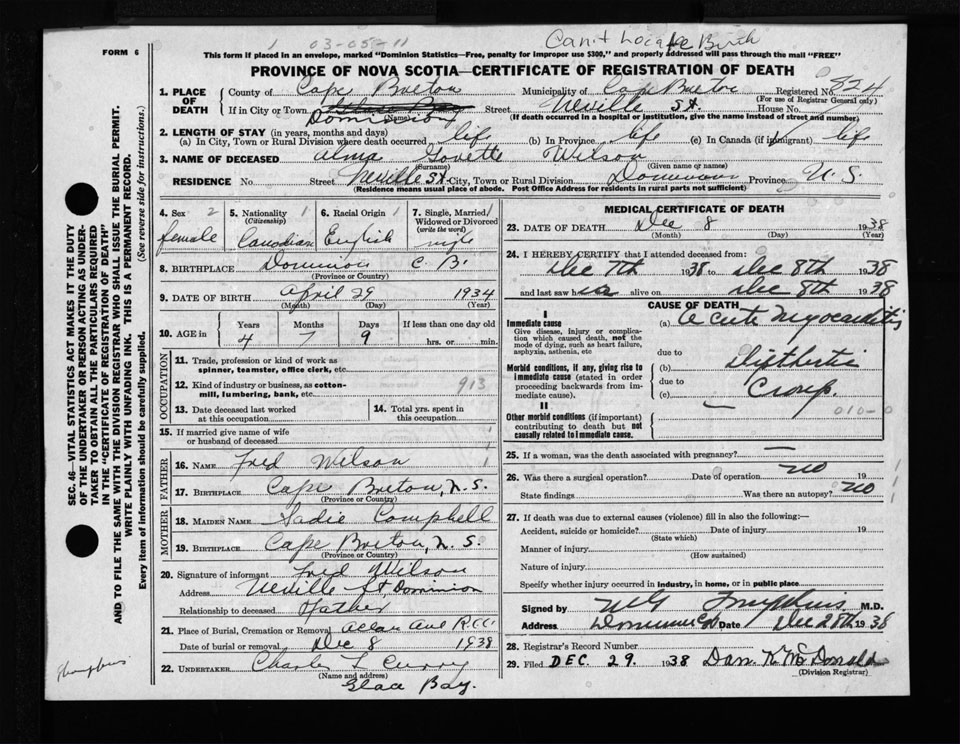 1 03-05-11 Can't Locate Birth
FORM 6
This form if placed in an envelope, marked "Dominion Statistics—Free, penalty for improper use $300," and properly addressed will pass through the mail "FREE"
PROVINCE OF NOVA SCOTIA—CERTIFICATE OF REGISTRATION OF DEATH
1. PLACE OF DEATH County of Cape Breton Municipality of Cape Breton Registered No. 824
(For use of Registrar General only)
If in City or Town Dominion Street Neville St. House No.
(Name) (If death occurred in a hospital or institution, give the name instead of street and number)
2. LENGTH OF STAY (in years, months and days)
(a) In City, Town or Rural Division where death occurred life (b) In Province life (c) In Canada (if immigrant) life
3. NAME OF DECEASED Alma Wilson
(Surname) (Given name or names)
RESIDENCE No. Street Neville St. City, Town or Rural Division Dominion Province N. S.
(Residence means usual place of abode. Post Office Address for residents in rural parts not sufficient)
4. Sex 2 female
5. Nationality 1 (Citizenship) Canadian
6. Racial Origin 1 English
7. Single, Married, Widowed or Divorced (write the word) single
8. BIRTHPLACE Dominion C. B.
(Province or Country)
9. DATE OF BIRTH April 29 1934
(Month) (Day) (Year)
10. AGE in Years 4 Months 7 Days 9 If less than one day hrs. or min.
OCCUPATION
11. Trade, profession or kind of work as spinner, teamster, office clerk, etc.
12. Kind of industry or business, as cotton-mill, lumbering, bank, etc. 913
13. Date deceased last worked at this occupation
14. Total yrs. spent in this occupation
15. If married give name of wife or husband of deceased
FATHER
16. NAME Fred Wilson
17. BIRTHPLACE Cape Breton, N. S.
(Province or Country)
MOTHER
18. MAIDEN NAME Sadie Campbell
19. BIRTHPLACE Cape Breton, N. S.
(Province or Country)
20. Signature of informant Fred Wilson
Address Neville St, Dominion
Relationship to deceased Father
21. Place of Burial, Cremation or Removal
Date of burial or removal Dec 8 1938
22. UNDERTAKER Charles F Curry
(Name and address)
Glace Bay.
MEDICAL CERTIFICATE OF DEATH
23. DATE OF DEATH Dec 8 1938
(Month) (Day) (Year)
24. I HEREBY CERTIFY that I attended deceased from:
Dec 7th 1938 to Dec 8th 1938
and last saw her alive on Dec 8th 1938
CAUSE OF DEATH
I
Immediate cause
Give disease, injury or complication which caused death, not the mode of dying, such as heart failure, asphyxia, asthenia, etc
(a) Acute Myocarditis
due to
Morbid conditions, if any, giving rise to immediate cause (stated in order proceeding backwards from immediate cause)
(b) Diphtheritic
due to
(c) Croup
II
Other morbid conditions (if important) contributing to death but not causally related to immediate cause.
010-0
25. If a woman, was the death associated with pregnancy?
26. Was there a surgical operation? no Date of operation 19
State findings Was there an autopsy? no
27. If death was due to external causes (violence) fill in also the following:—
Accident, suicide or homicide? Date of injury 19
(State which)
Manner of injury
(How sustained)
Nature of injury
Specify whether injury occurred in industry, in home, or in public place
Signed by M.D.
Address Dominion Date Dec 28th 1938
28. Registrar's Record Number
29. Filed DEC. 29. 1938 Dan. McDonald
(Division Registrar)
SEC. 46—VITAL STATISTICS ACT MAKES IT THE DUTY
OF THE UNDERTAKER OR PERSON ACTING AS UNDER-
TAKER TO OBTAIN ALL THE PARTICULARS REQUIRED
IN THE "CERTIFICATE OF REGISTRATION OF DEATH"
AND TO FILE THE SAME WITH THE DIVISION REGISTRAR WHO SHALL ISSUE THE BURIAL PERMIT.
WRITE PLAINLY WITH UNFADING INK. THIS IS A PERMANENT RECORD.
Every item of information should be carefully supplied. (See reverse side for instructions.)